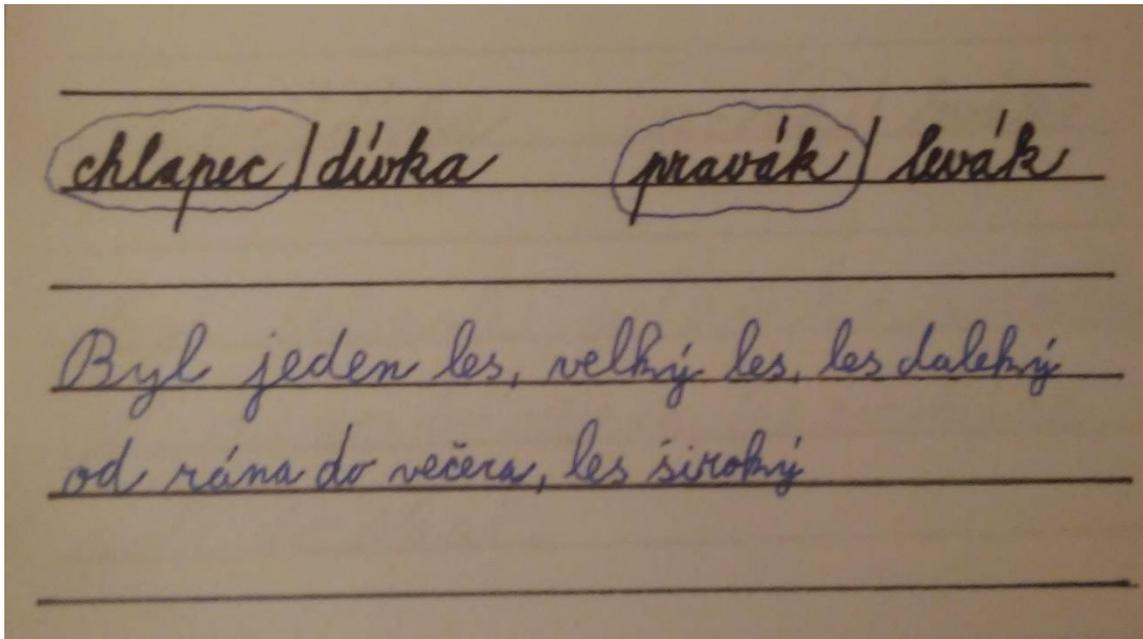 chlapec / dívka pravák / levák
Byl jeden les, velký les, les daleký
od rána do večera, les široký